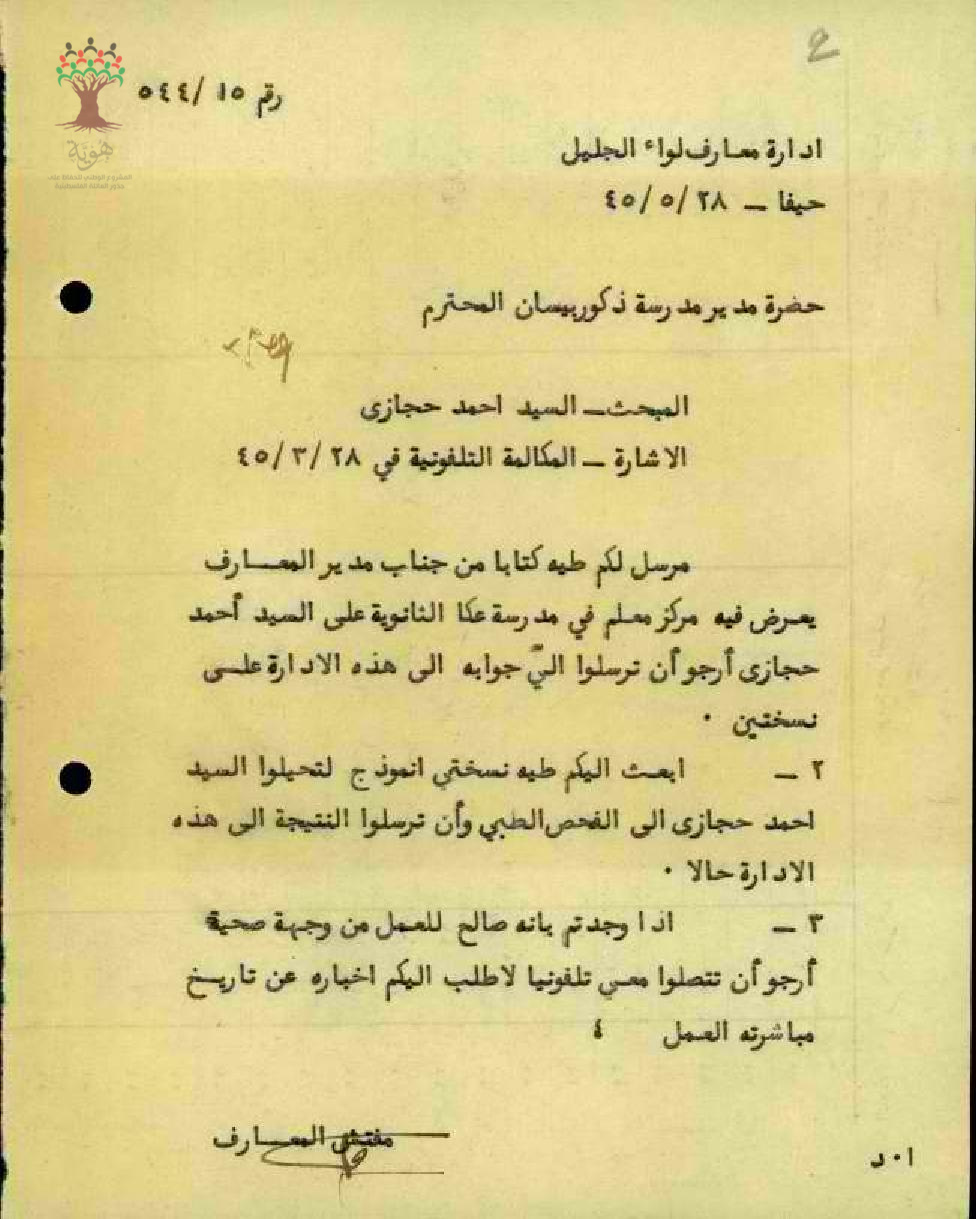 رقم ١٥ /٥٤٤
هوية
ادارة معارف لواء الجليل
حيفا – ٢٨ /٥ /٤٥
حضرة مدير مدرسة ذكور بيسان المحترم
المبحث – السيد احمد حجازى
الاشارة – المكالمة التلفونية في ٢٨ /٣ /٤٥
مرسل لكم طيه كتابا من جناب مدير المعـــارف
يعرض فيه مركز معلم في مدرسة عكا الثانوية على السيد أحمد
حجازى أرجو أن ترسلوا اليّ جوابه الى هذه الادارة علــى
نسختين ٠
٢ – ابعث اليكم طيه نسختي انموذج لتحيلوا السيد
احمد حجازى الى الفحص الطبي وأن ترسلوا النتيجة الى هذه
الادارة حالا ٠
٣ – اذا وجدتم بانه صالح للعمل من وجهة صحية
أرجو أن تتصلوا معي تلفونيا لاطلب اليكم اخباره عن تاريــخ
مباشرته العمل ٤
مفتش المعــارف
ا٠د